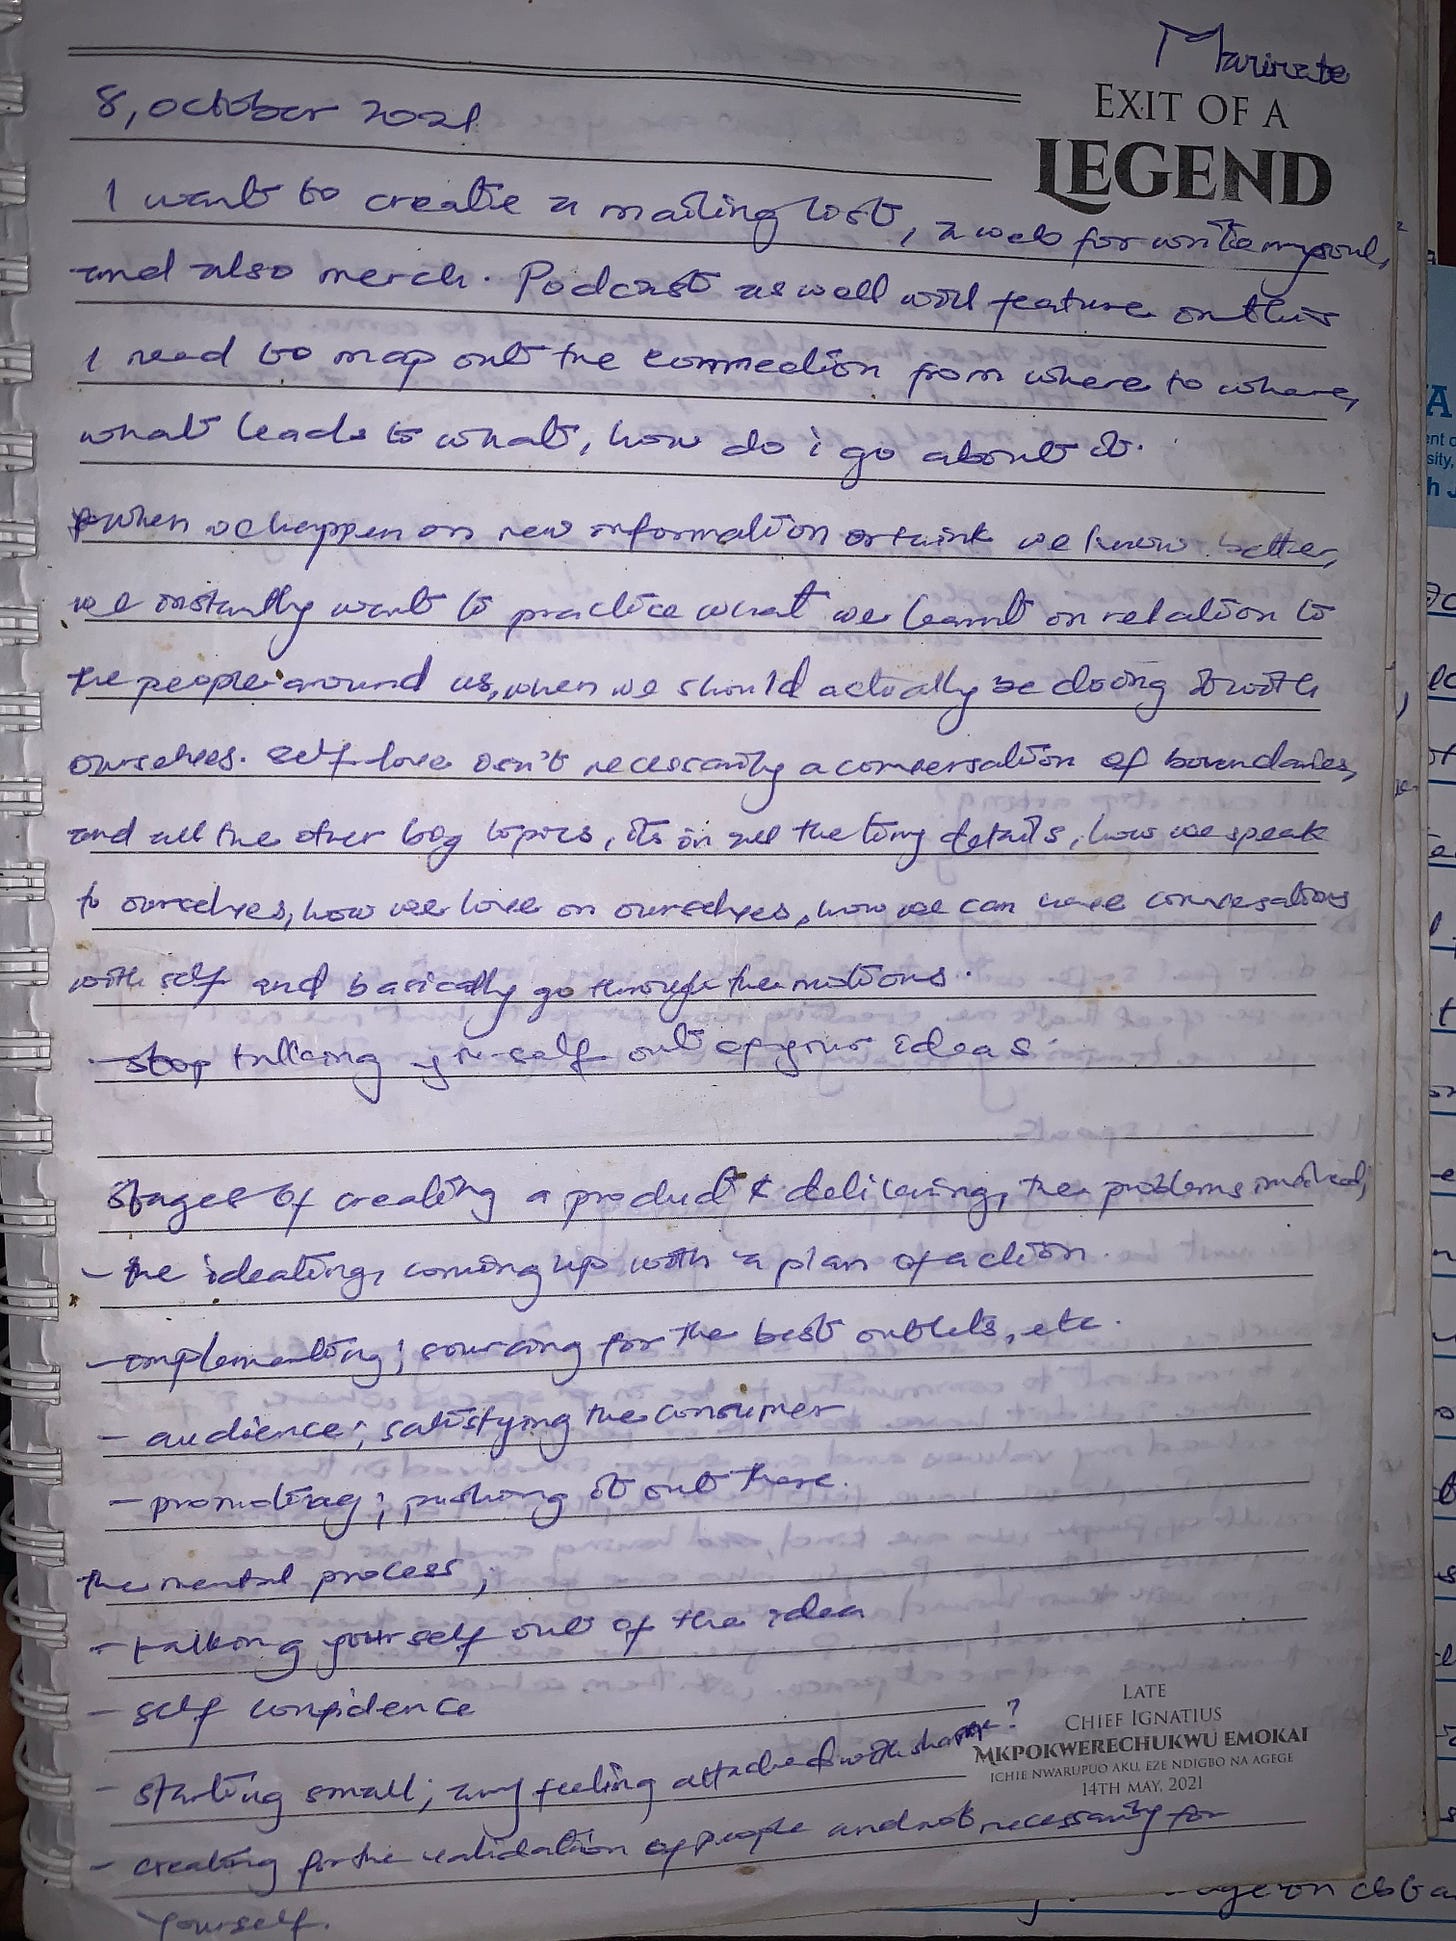 Marinate
EXIT OF A
LEGEND
8, october 2021
I want to create a mailing list, a web for write my soul,
and also merch. Podcast as well will feature on this
I need to map out the connection from where to where,
what leads to what, how do i go about it.
when we happen on new information or think we know better,
we instantly want to practice what we learnt in relation to
the people around us, when we should actually be doing it with
ourselves. self love isn't necessarily a conversation of boundaries,
and all the other big topics, its in all the tiny details, how we speak
to ourselves, how we love on ourselves, how we can have conversations
with self and basically go through the motions.
- stop talking yourself out of your ideas.
Stages of creating a product & delivering, the problems involved,
- the ideating, coming up with a plan of action.
- implementing; sourcing for the best outlets, etc.
- audience; satisfying the consumer
- promoting; pushing it out there.
the mental process;
- talking yourself out of the idea
- self confidence
- starting small; any feeling attached with shame?
- creating for the validation of people and not necessarily for
yourself.
LATE
CHIEF IGNATIUS
MKPOKWERECHUKWU EMOKAI
ICHIE NWARUPUO AKU, EZE NDIGBO NA AGEGE
14TH MAY, 2021